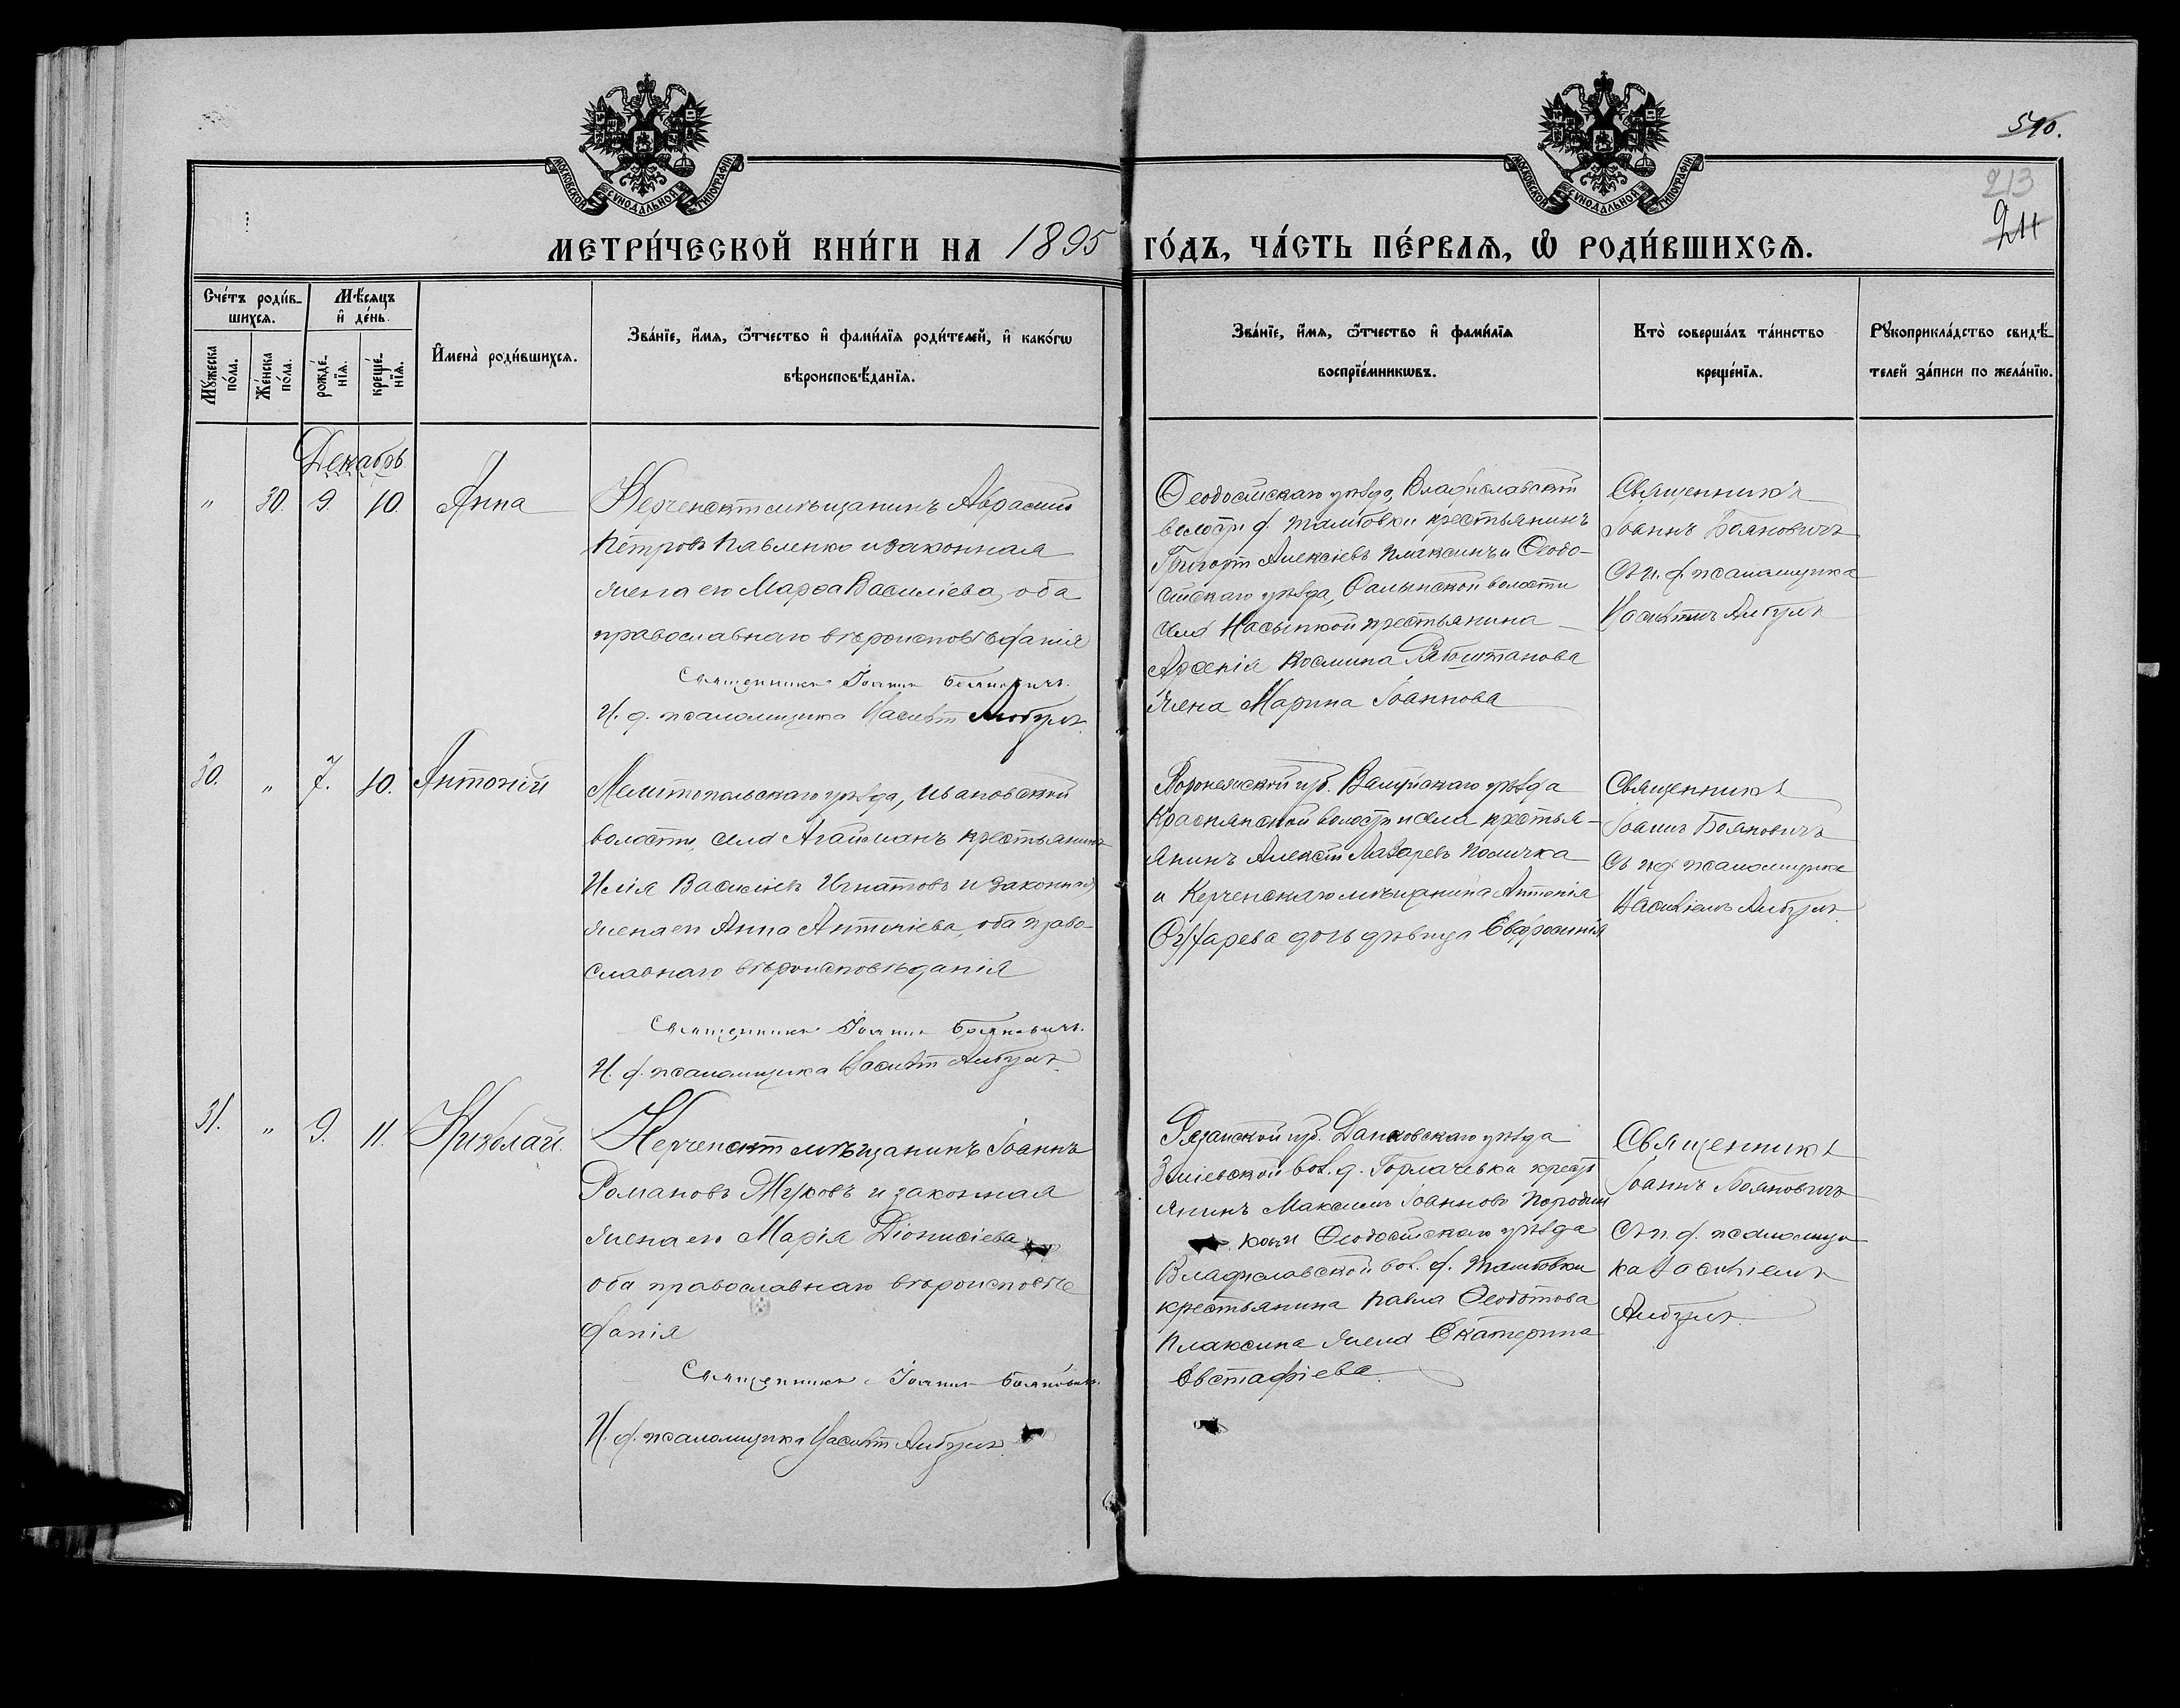 510.
213
211
МОСКОВСКОЙ СѴНОДАЛЬНОЙ ТИПОГРАФІИ
МОСКОВСКОЙ СѴНОДАЛЬНОЙ ТИПОГРАФІИ
МЕТРИ́ЧЕСКОЙ КНИ́ГИ НА 1895 ГО́ДЪ, ЧА́СТЬ ПЕ́РВАѦ, Ѡ҆ РОДИ́ВШИХСѦ.
Сче́тъ роди́в-
шихсѧ.
Мꙋ́жеска по́ла.
Же́нска по́ла.
Мѣ́сѧцъ
и҆ де́нь.
рожде́-
нїѧ.
креще́-
нїѧ.
И҆мена̀ роди́вшихсѧ.
Зва́нїе, и҆́мѧ, ѻ҆́тчество и҆ фами́лїѧ роди́телей, и҆ како́гѡ
вѣроисповѣ́данїѧ.
Зва́нїе, и҆́мѧ, ѻ҆́тчество и҆ фами́лїѧ
воспрїе́мникѡвъ.
Кто̀ соверша́лъ та́инство
креще́нїѧ.
Рꙋкоприкла́дство свидѣ́-
телей за́писи по жела́нїю.
Декабрь
" 30. 9. 10. Анна
Керченскій мѣщанинъ Авраамій
Петровъ Павленко и законная
жена его Марѳа Василіева, оба
православнаго вѣроисповѣданія
Священникъ Іоаннъ Бояновичъ.
И. д. псаломщика
Ѳеодосійскаго уѣзда, Владиславской
волости д. Тамбовки крестьянинъ
Григорій Алексіевъ Плаксинъ и Ѳеодо-
сійскаго уѣзда, волости
села Насыпкой крестьянина
Арсенія Космина
жена Марина Іоаннова
Священникъ
Іоаннъ Бояновичъ
съ и. д. псаломщика
30. " 7. 10. Антоній
Мелитопольскаго уѣзда, Ивановской
волости, села Агайманъ крестьянинъ
Илія Василіевъ Игнатовъ и законная
жена его Анна Антоніева, оба право-
славнаго вѣроисповѣданія
Священникъ Іоаннъ Бояновичъ.
И. д. псаломщика
Воронежской губ. Валуйскаго уѣзда
Краснянской волости и села крестья-
янинъ Алексій Лазаревъ
и Керченскаго мѣщанина Антонія
дочь дѣвица Евфросинія
Священникъ
Іоаннъ Бояновичъ
съ и. д. псаломщика
31. " 9. 11. Николай.
Керченскій мѣщанинъ Іоаннъ
Романовъ Жуковъ и законная
жена его Марія Діонисіева
оба православнаго вѣроисповѣ
данія
Священникъ Іоаннъ Бояновичъ.
И. д. псаломщика
Рязанской губ. Данковскаго уѣзда
Зміевской вол. д. крест
янинъ Максимъ Іоанновъ
и Ѳеодосійскаго уѣзда
Владиславской вол. д. Тамбовки
крестьянина Павла Ѳеодотова
Плаксина жена Екатерина
Евстафіева.
Священникъ
Іоаннъ Бояновичъ
съ и. д. псаломщи
ка